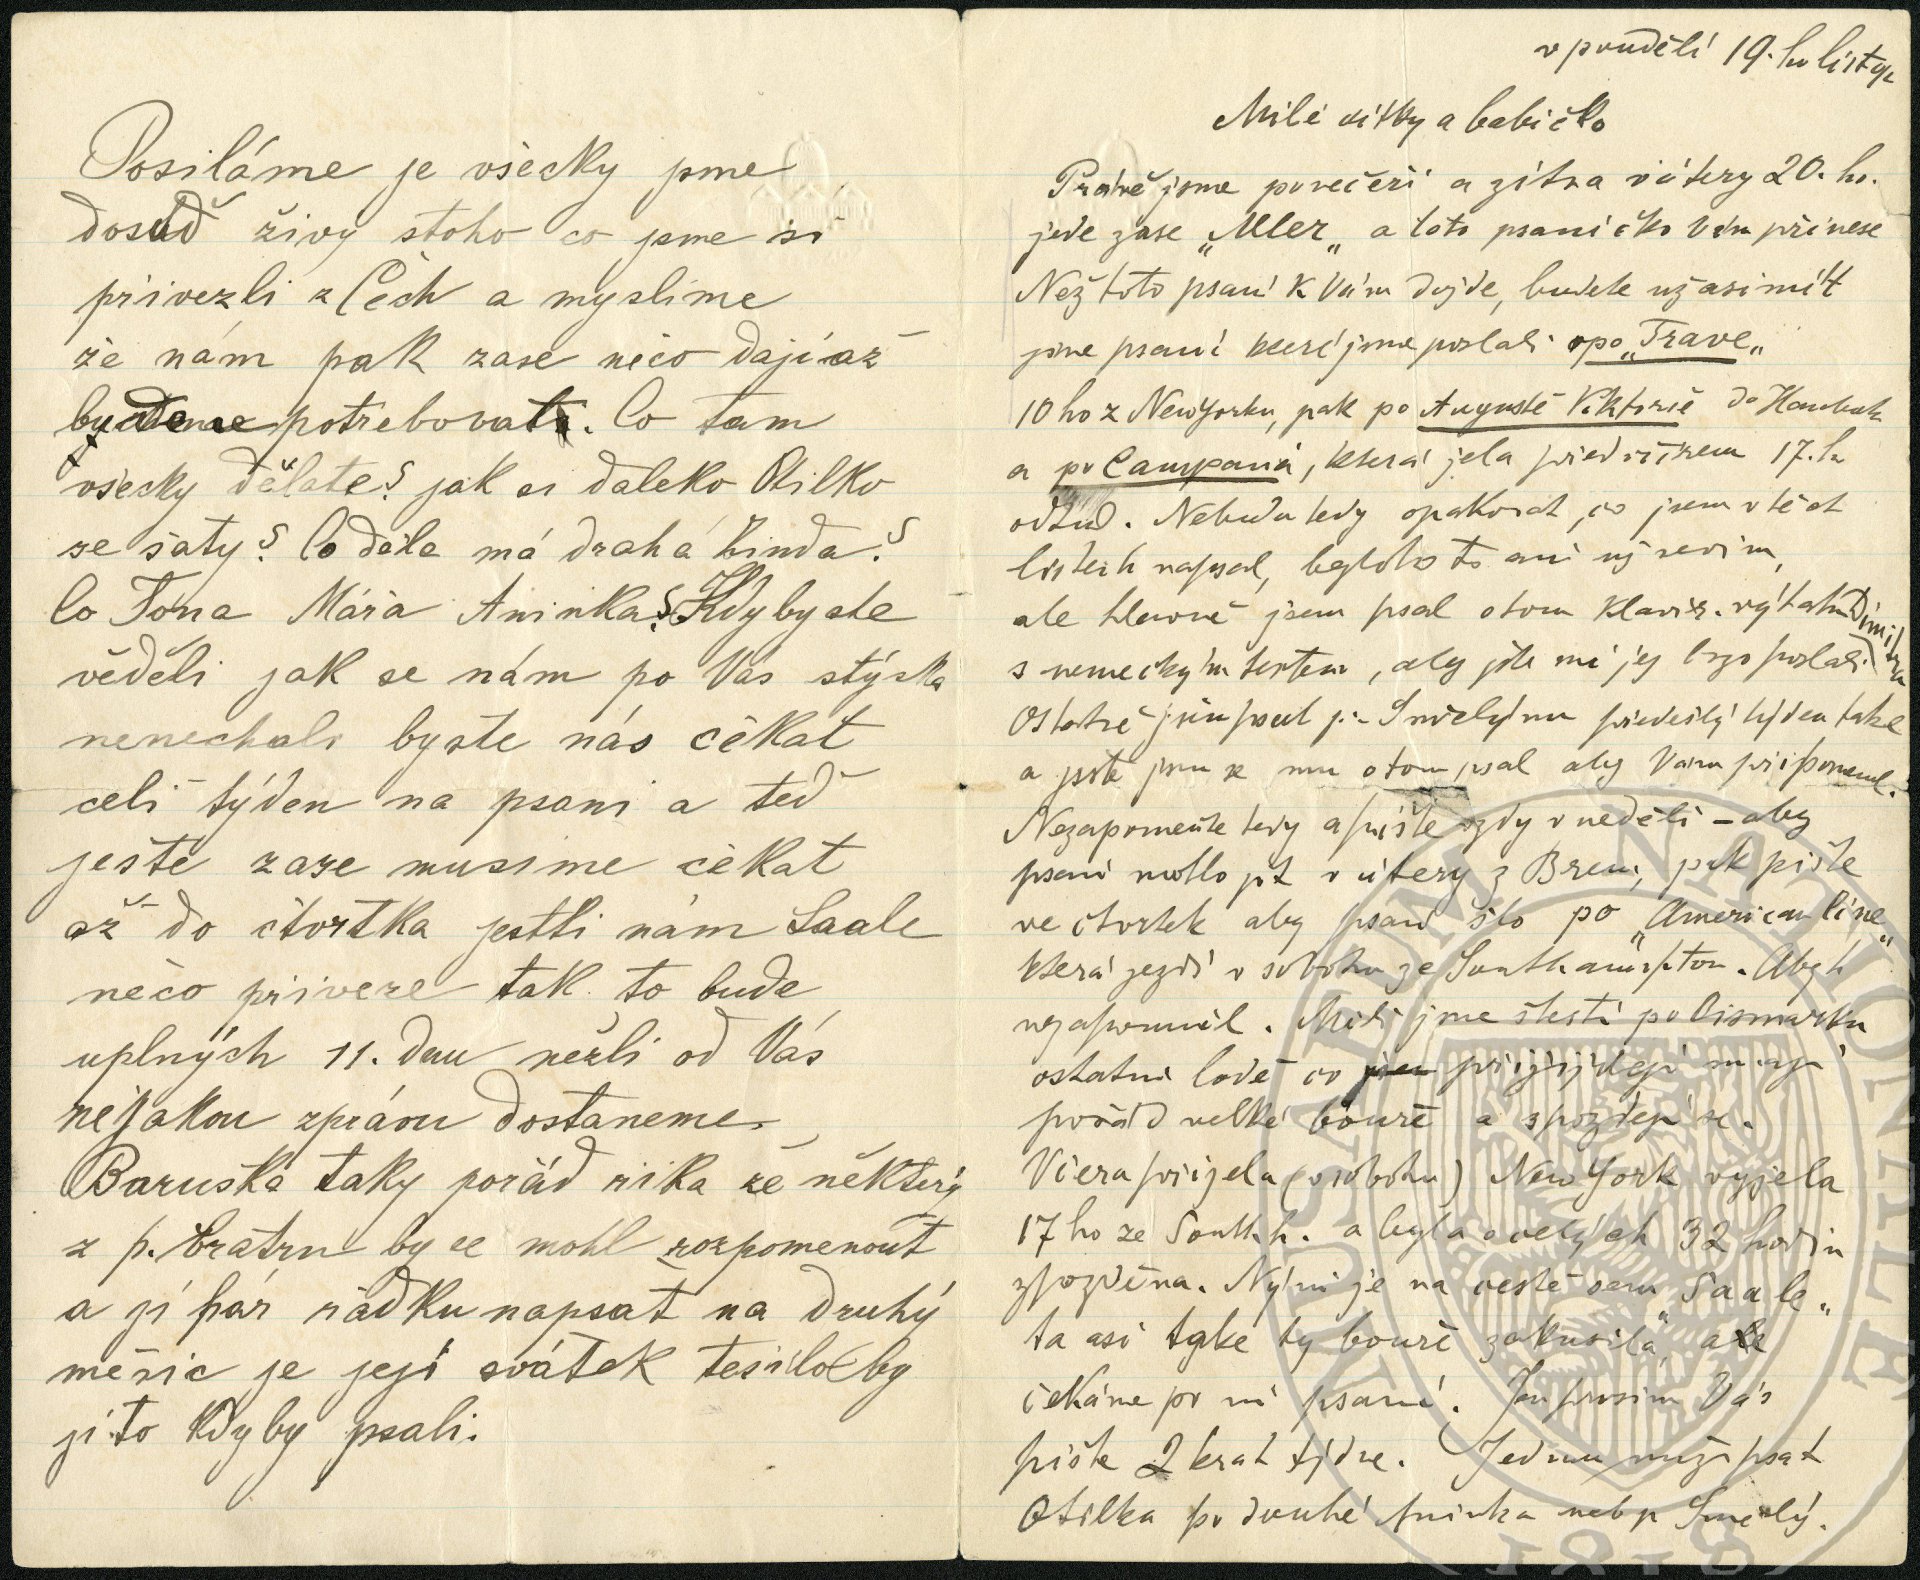 Posiláme je všecky jsme
dosuď živy stoho co jsme si
přivezli z Čech a myslíme
že nám pak zase něco dají až
budeme potrebovati. Co tam
všecky děláte? jak si daleko Otilko
se šaty? Co děla má drahá Zinda?
Co Tóna Mářa Aninka? Kdybyste
věděli jak se nám po Vás stýska
nenechali byste nás čěkat
celi týden na psani a teď
ješte zase musime čekat
až do čtvrtka jestli nám Saale
něco priveze tak to bude
uplných 11. dnu nežli od Vás
nejakou zprávu dostaneme.
Baruška taky pořád rika že některý
z p. bratru by se mohl rozpomenout
a jí pár rádku napsat na druhý
měsic je její svátek tesilo by
ji to kdyby psali.
v pondělí 19. ho listop
Milé dítky a babičko
Právě jsme povečeři a zítra v útery 20. ho.
jede zase „Aller„ a toto psaníčko Vám přinese
Než toto psaní k Vám dojde, budete už asi mít
jine psaní které jsme poslali po „Trave„
10 ho z New Yorku, pak po Augustě Viktorií do Hamburk
a po Campania, která jela předvčírem 17. h
odtud. Nebudu tedy opakovat, co jsem v těch
listech napsal, bylť to to ani už nevím,
ale hlavně jsem psal o tom klavir. výtahu Dimitra
s nemeckým textem, aby jste mi jej brzo poslali
Ostatně jsem psal p. Smělýmu předešlý týden take
a jistě jsem se mu o tom psal aby Vám připomenul.
Nezapomeňte tedy a pište vždy v neděli – aby
psaní mohlo jít v útery z Brem, pak pište
ve čtvrtek aby psaní šlo po „American line„
která jezdí v sobotu ze Southampton. Abych
nezapomněl. Měli jme štestí po Bismarku
ostatni lodě co přijíždejí mají
pořád velké bouře a zpozdejí se.
Včera přijela (v sobotu) New York vyjela
17 ho ze Southh. a byla o celých 32 hodin
zpozděna. Nyní je na cestě sem „Saale„
ta asi take ty bouře zakusila, ale
čekáme po ní psaní. Jen prosím Vás
pište 2 krat týdne. Jednou může psat
Otilka po druhé Aninka neb p Smělý.